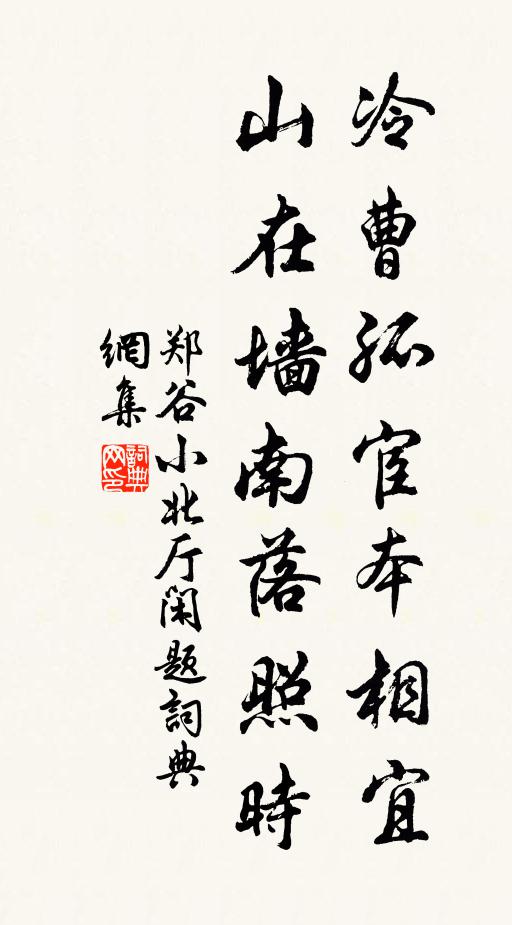 冷曹孤宦本相宜
山在墙南落照時
郑谷小北厅闲题詞典
網集
詞典
网印